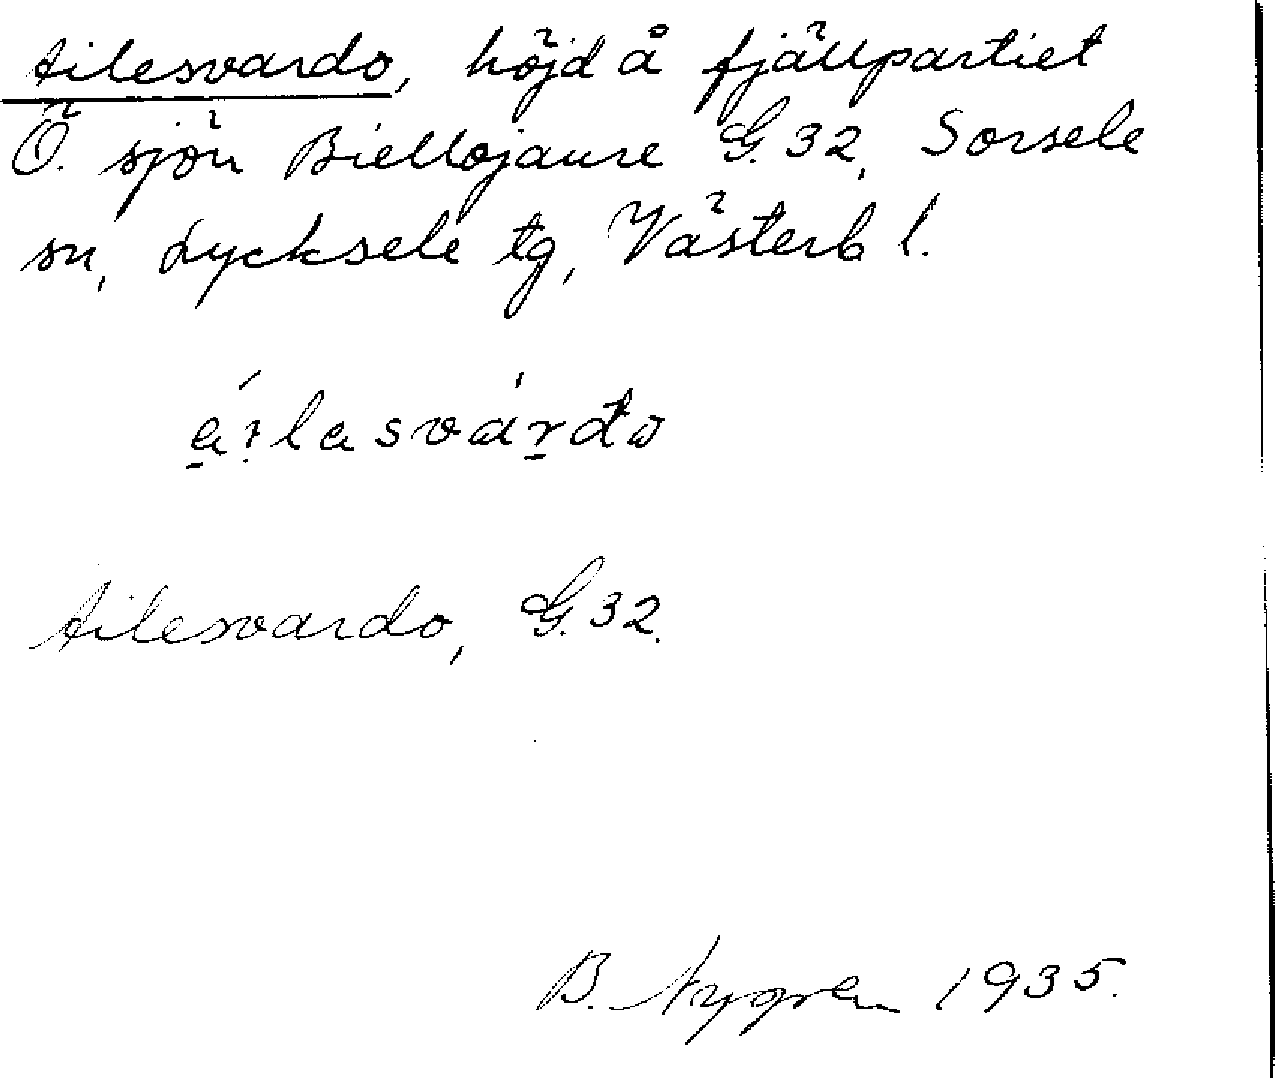 Ailesvardo, höjd å fjällpartiet
Ö. sjön Biellojaure G. 32, Sorsele
sn, Lycksele tg, Västerb l.
Ailesvardo, G. 32.
B. Nygren 1935.